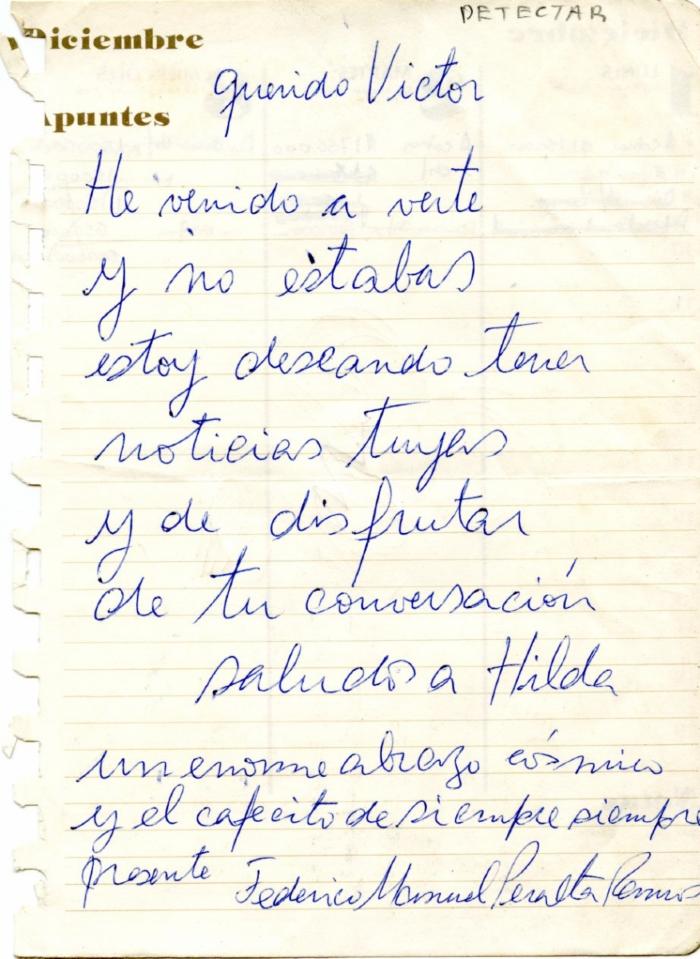 DETECTAR
Diciembre
Apuntes
Querido Victor
He venido a verte
y no estabas
estoy deseando tener
noticias tuyas
y de disfrutar
de tu conversación
saludos a Hilda
un enorme abrazo cósmico
y el cafecito de siempre siempre
presente Federico Manuel Peralta Ramos